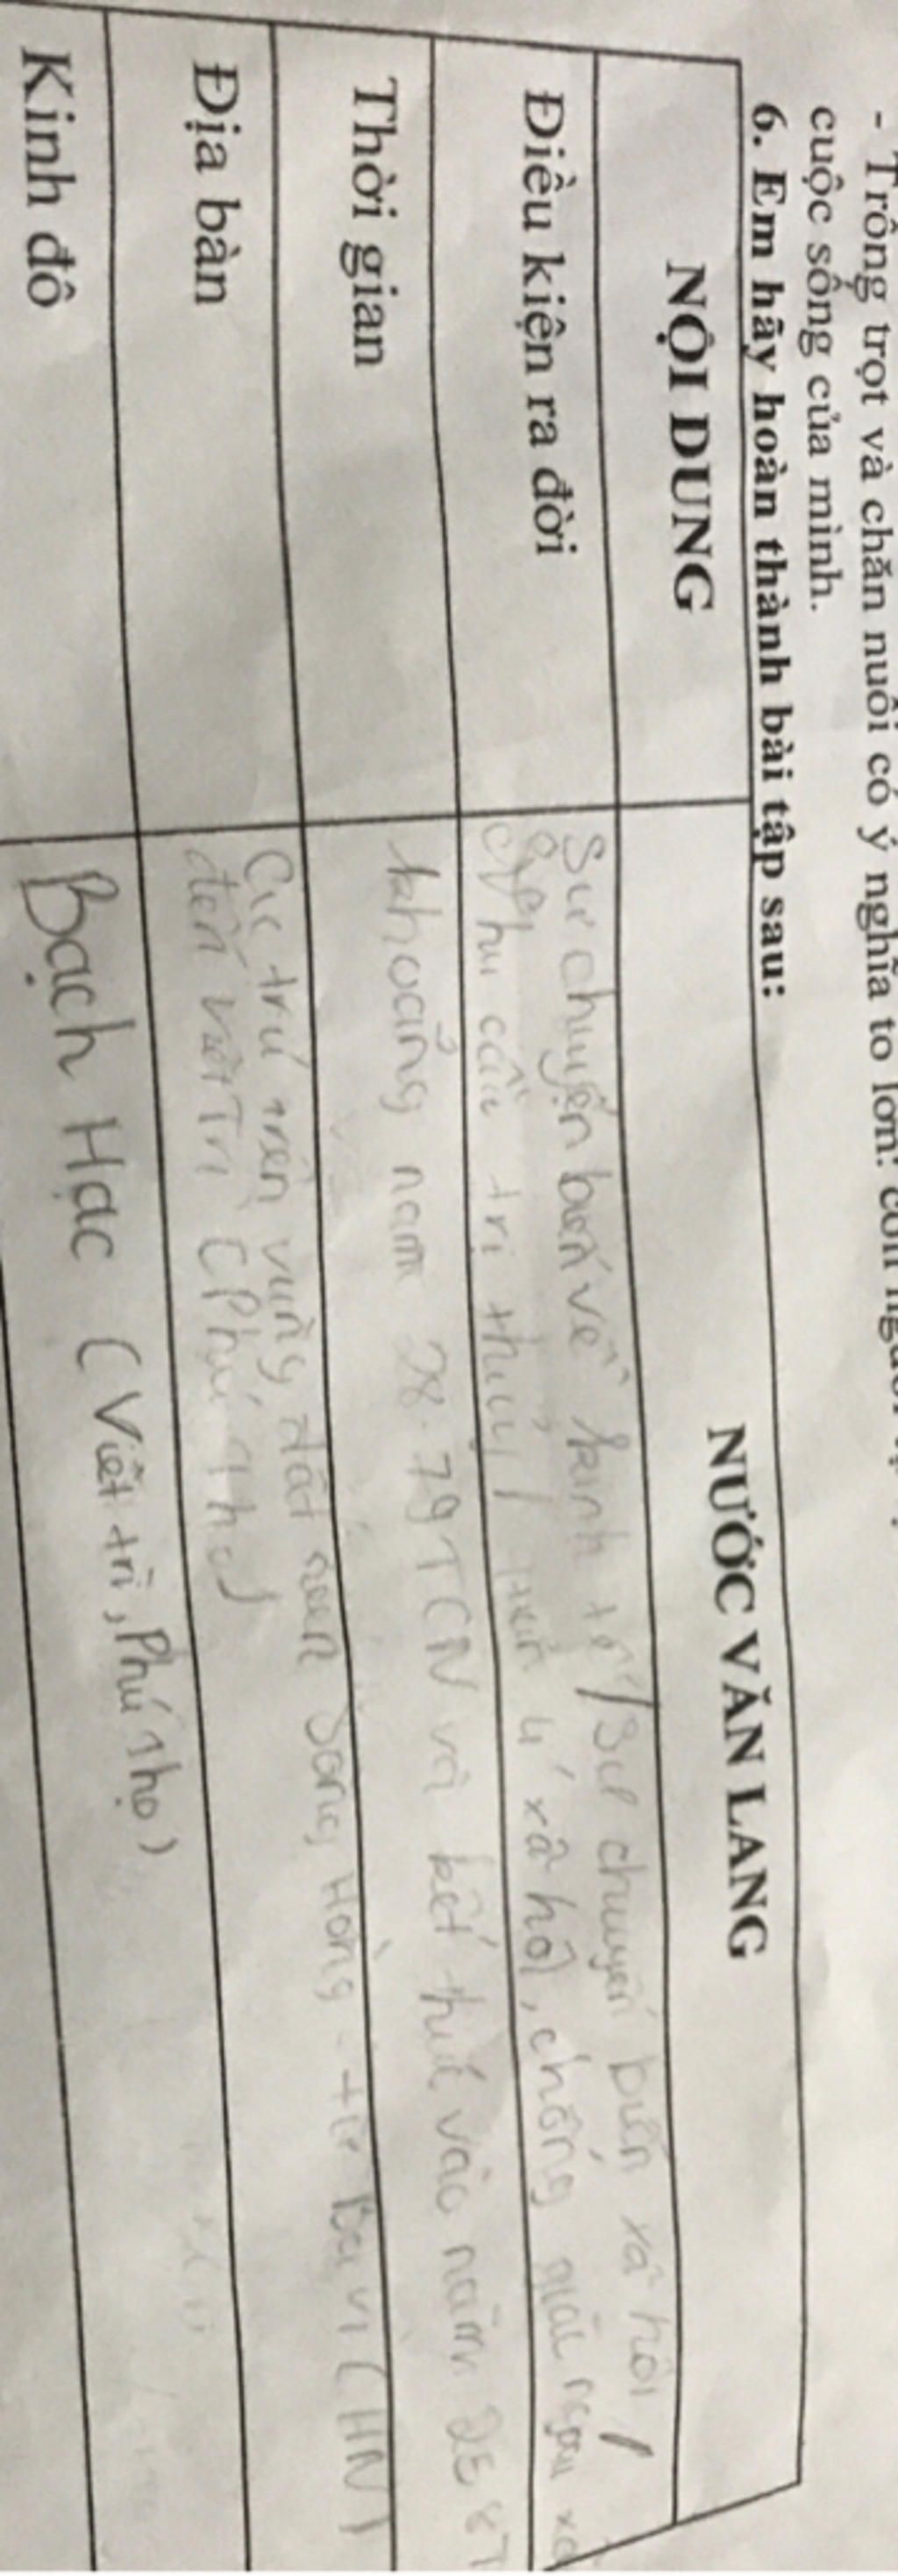 - Trồng trọt và chăn nuôi có ý nghĩa to lớn: con người
cuộc sống của mình.
6. Em hãy hoàn thành bài tập sau:
NỘI DUNG NƯỚC VĂN LANG
Điều kiện ra đời Sự chuyển biến về kinh tế / Sự chuyển biến xã hội /
nhu cầu trị thuỷ / xã hội, chống giặc ngoại xâ
Thời gian khoảng năm 2879 TCN và kết thúc vào năm 258
Địa bàn Cư trú trên vùng đất ven sông Hồng - từ Ba Vì (HN)
đến Việt Trì (Phú Thọ)
Kinh đô Bạch Hạc (Việt trì, Phú Thọ)